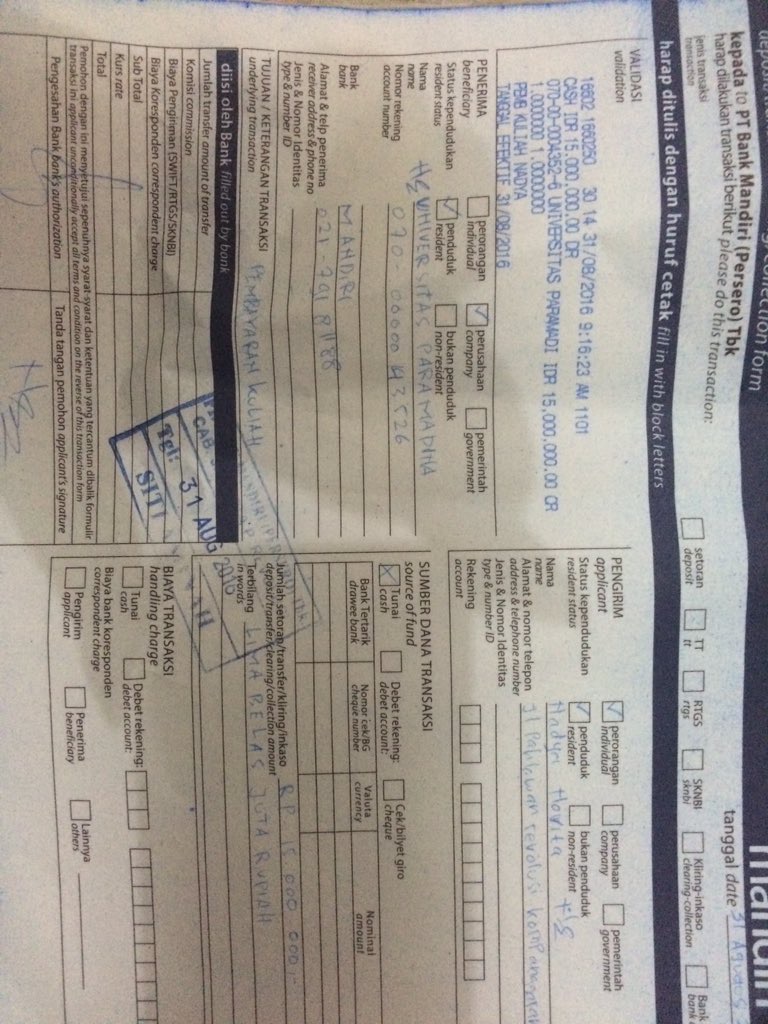 collection form
mandiri
kepada to PT Bank Mandiri (Persero) Tbk
harap dilakukan transaksi berikut please do this transaction:
tanggal date 31
jenis transaksi
transaction
setoran
deposit
TT
tt
RTGS
rtgs
SKNBI
sknbi
Kliring-inkaso
clearing-collection
Bank
bank
harap ditulis dengan huruf cetak fill in with block letters
VALIDASI
validation
16602 1660250 30 14 31/08/2016 9:16:23 AM 1101
CASH IDR 15,000,000.00 DR
070-00-0004352-6 UNIVERSITAS PARAMADI IDR 15,000,000.00 CR
1.0000000 1.0000000
PEMB KULIAH NADYA
TANGGAL EFEKTIF 31/08/2016
PENERIMA
beneficiary
perorangan
individual
perusahaan
company
pemerintah
government
Status kependudukan
resident status
penduduk
resident
bukan penduduk
non-resident
Nama
name
UNIVERSITAS PARAMADINA
Nomor rekening
account number
070-
Bank
bank
MANDIRI
Alamat & telp penerima
receiver address & phone no
021-
Jenis & Nomor Identitas
type & number ID
TUJUAN / KETERANGAN TRANSAKSI
underlying transaction
PEMBAYARAN KULIAH
diisi oleh Bank filled out by bank
Jumlah transfer amount of transfer
Komisi commission
Biaya Pengiriman (SWIFT/RTGS/SKNBI)
Biaya Koresponden correspondent charge
Sub Total
Kurs rate
Total
Pemohon dengan ini menyetujui sepenuhnya syarat-syarat dan ketentuan yang tercantum dibalik formulir
transaksi ini applicant unconditionally accept all terms and condition on the reverse of this transaction form
Pengesahan Bank bank's authorization
Tanda tangan pemohon applicant's signature
CAB
Tgl: 31 AUG 2016
SITI
PENGIRIM
applicant
perorangan
individual
perusahaan
company
pemerintah
government
Status kependudukan
resident status
penduduk
resident
bukan penduduk
non-resident
Nama
name
Nadya
Alamat & nomor telepon
address & telephone number
Jl Pahlawan revolusi
Jenis & Nomor Identitas
type & number ID
Rekening
account
SUMBER DANA TRANSAKSI
source of fund
Tunai
cash
Debet rekening:
debet account:
Cek/bilyet giro
cheque
Bank Tertarik
drawee bank
Nomor cek/BG
cheque number
Valuta
currency
Nominal
amount
Jumlah setoran/transfer/kliring/inkaso
deposit/transfer/clearing/collection amount
RP 15.000.000,-
Terbilang
in words
LIMA BELAS JUTA RUPIAH
BIAYA TRANSAKSI
handling charge
Tunai
cash
Debet rekening:
debet account:
Biaya bank koresponden
correspondent charge
Pengirim
applicant
Penerima
beneficiary
Lainnya
others